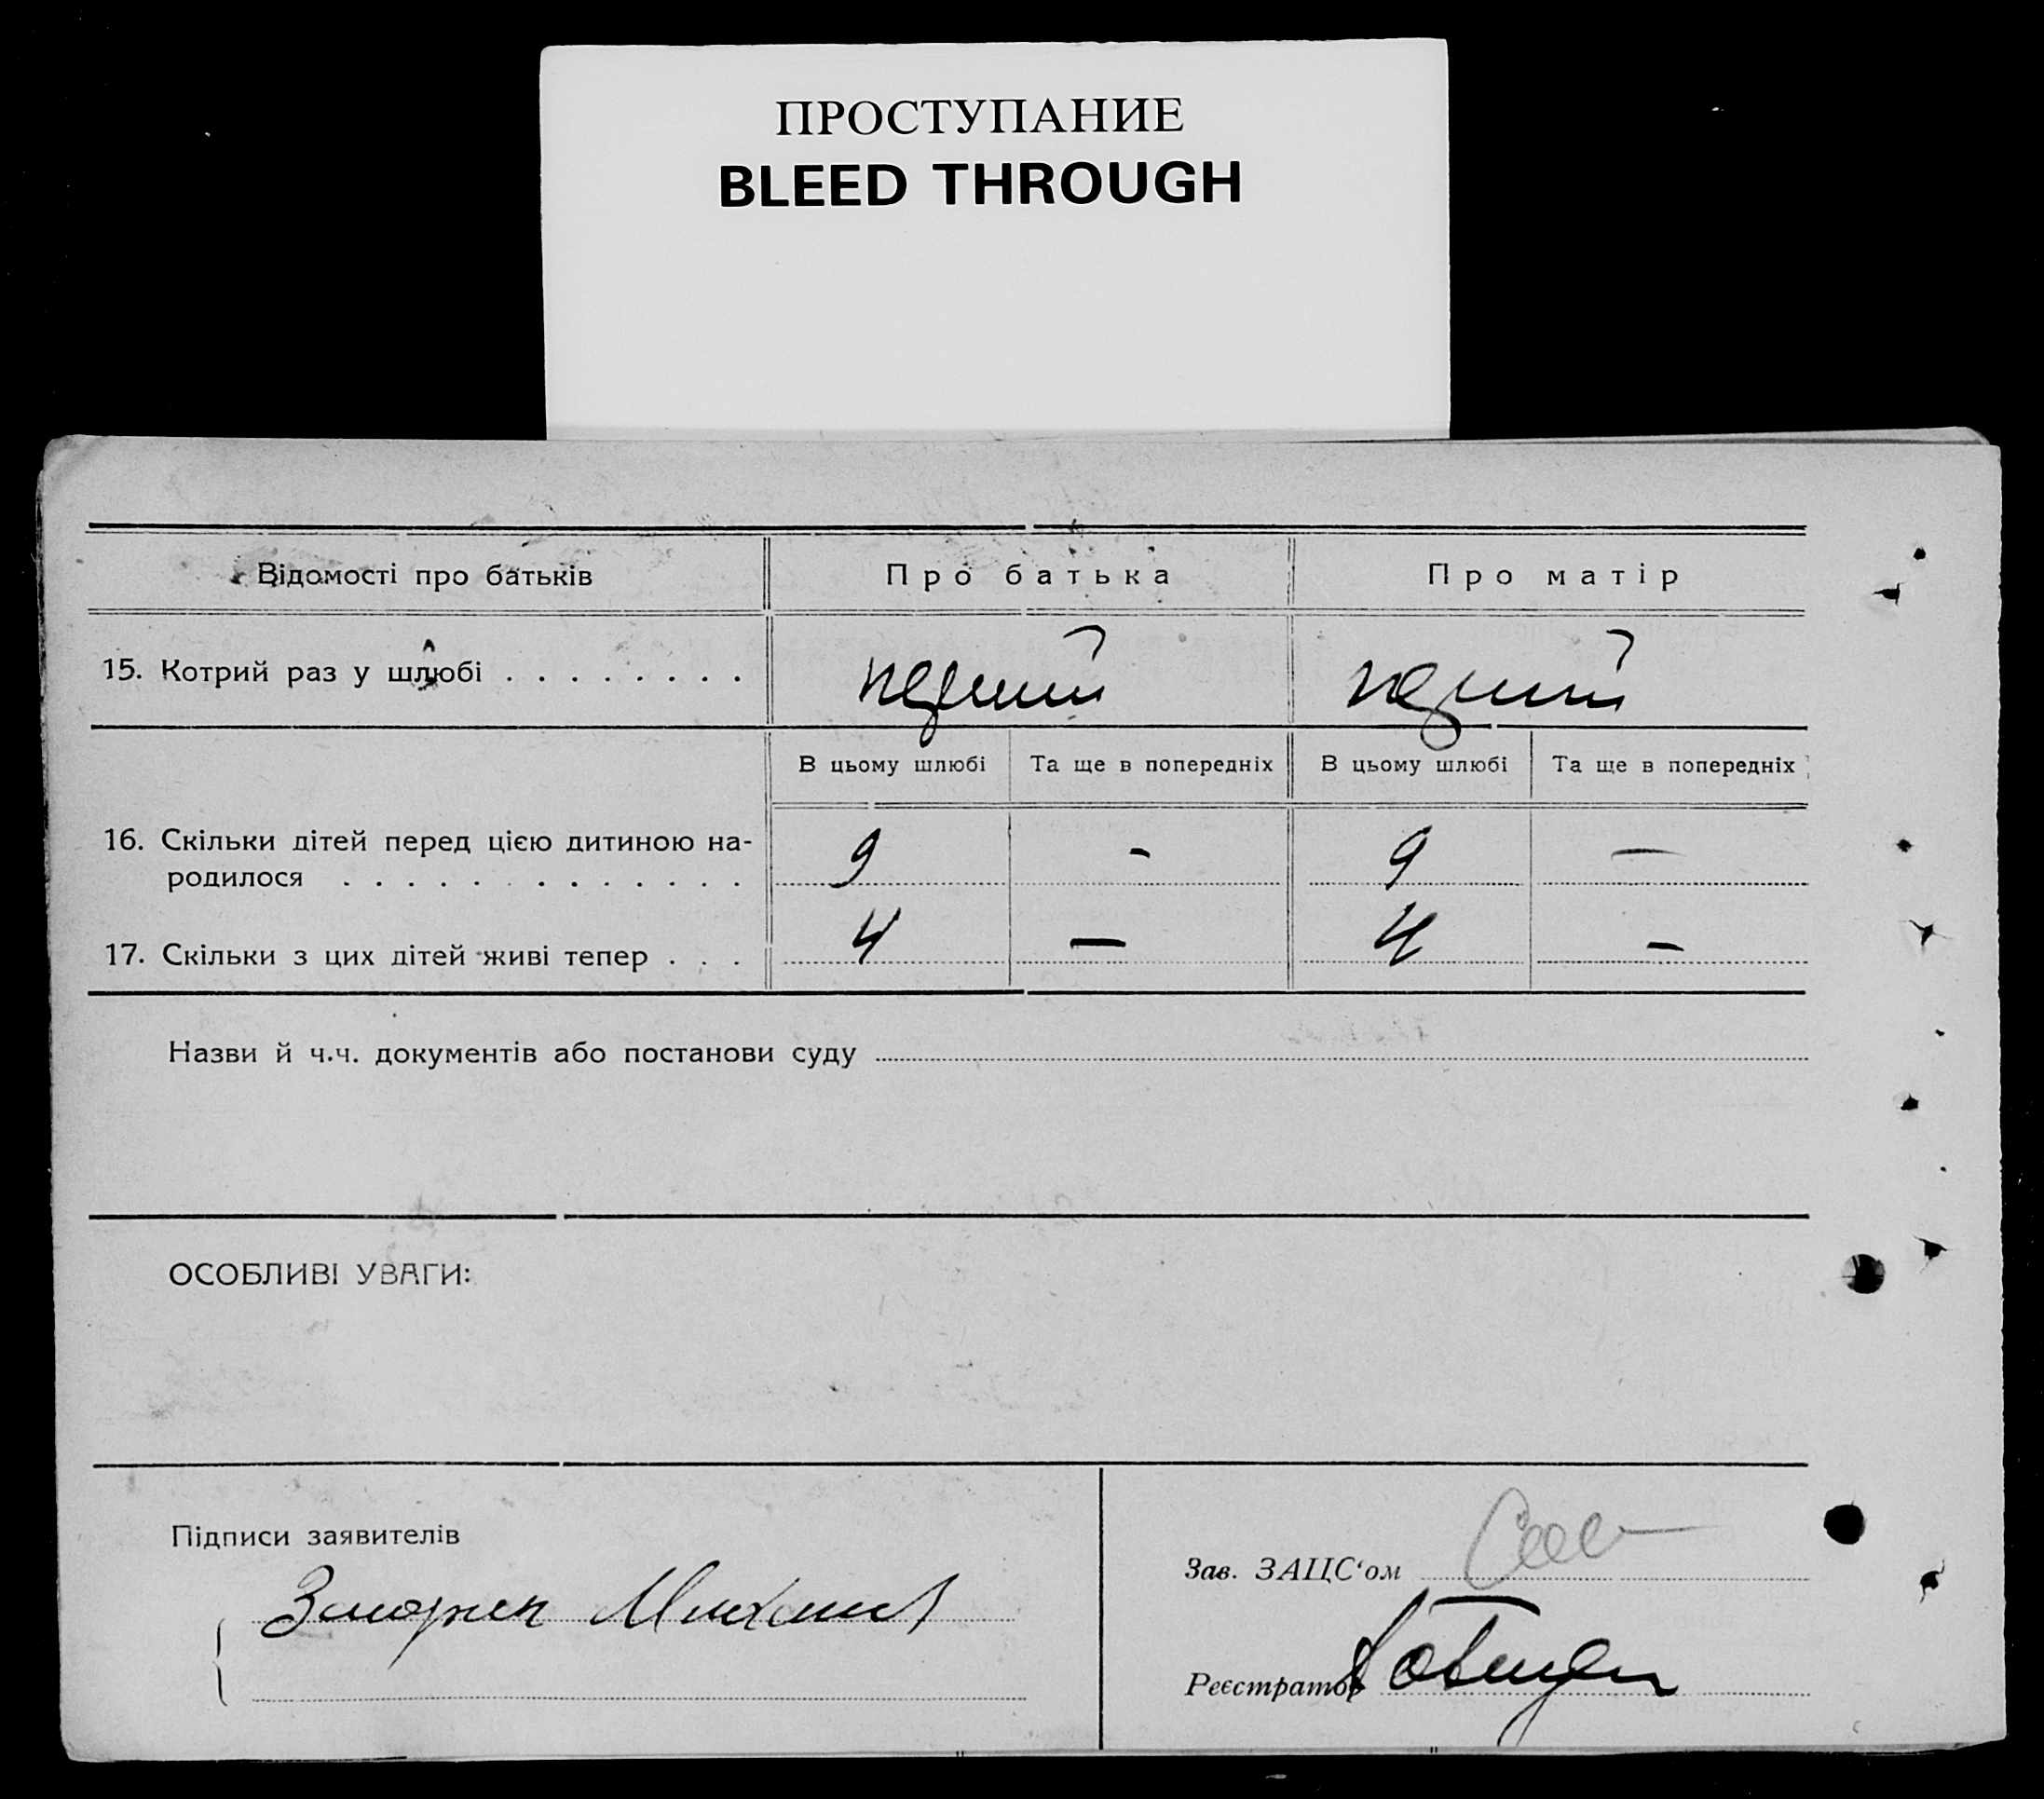 ПРОСТУПАНИЕ
BLEED THROUGH
Відомості про батьків
Про батька
Про матір
15. Котрий раз у шлюбі . . . . . . . .
перший
перший
В цьому шлюбі
Та ще в попередніх
В цьому шлюбі
Та ще в попередніх
16. Скільки дітей перед цією дитиною на-
родилося . . . . . . . . . . . . .
9
-
9
—
17. Скільки з цих дітей живі тепер . . .
4
—
4
—
Назви й ч.ч. документів або постанови суду
ОСОБЛИВІ УВАГИ:
Підписи заявителів
Зав. ЗАЦС‘ом
Реєстратор